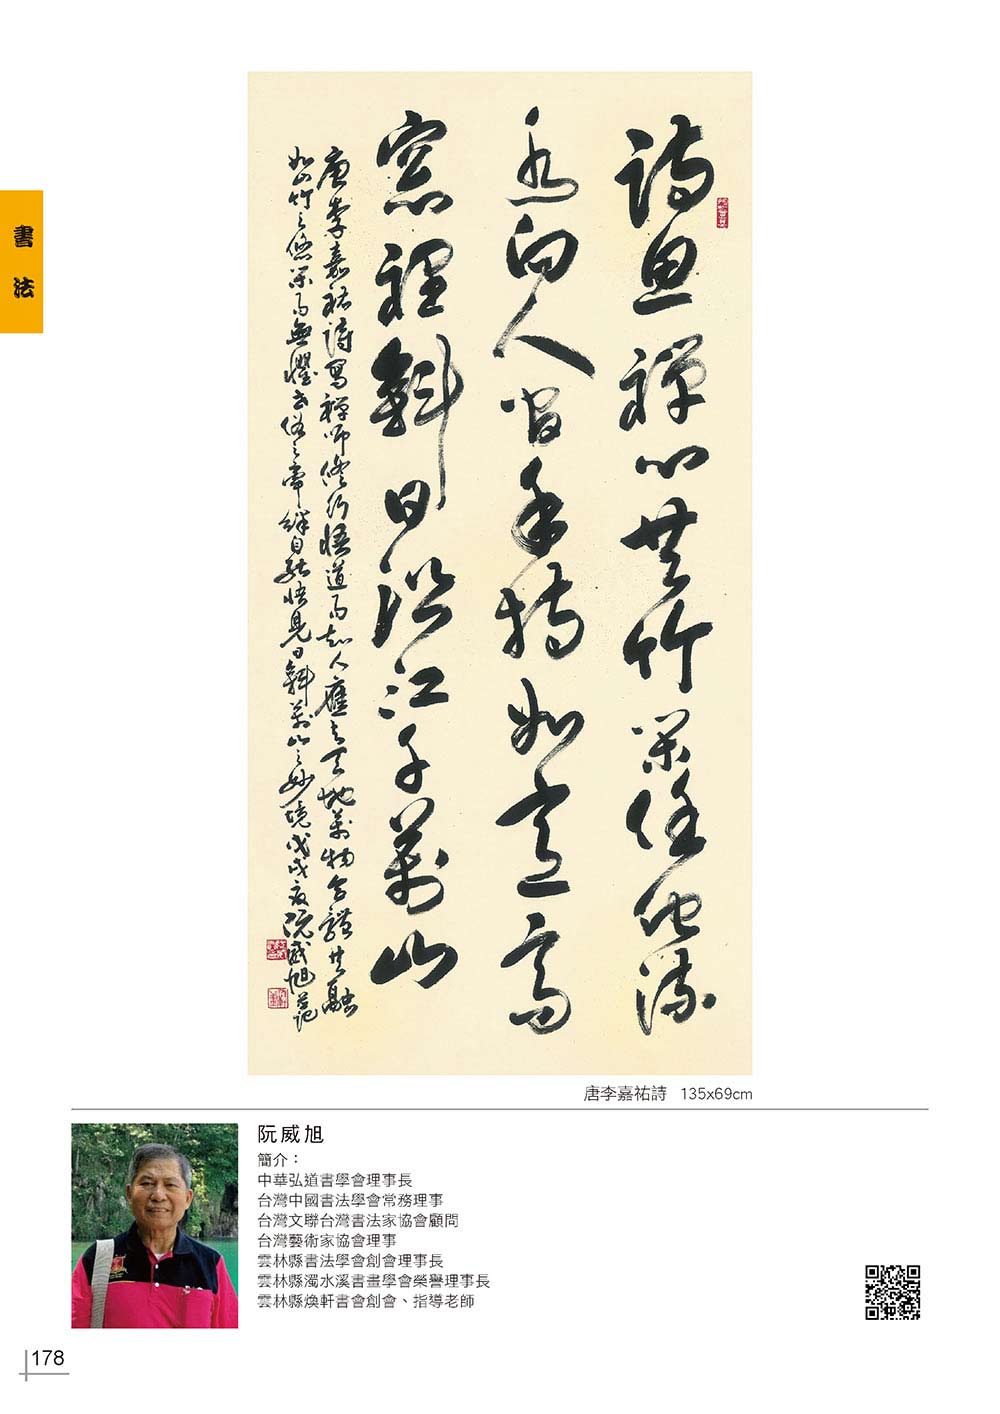 書法
詩思禪心共竹閒任他流
水向人間手持如意高
窓裡斜日沿江千萬山
唐李嘉祐詩寫禪師修行悟道而知人應與天地萬物合體共融
如山竹之悠閒而無懼世俗之牽絆自能悟見日斜萬山之妙境戊戌夏阮威旭并記
唐李嘉祐詩 135x69cm
阮威旭
簡介：
中華弘道書學會理事長
台灣中國書法學會常務理事
台灣文聯台灣書法家協會顧問
台灣藝術家協會理事
雲林縣書法學會創會理事長
雲林縣濁水溪書畫學會榮譽理事長
雲林縣煥軒書會創會、指導老師
178